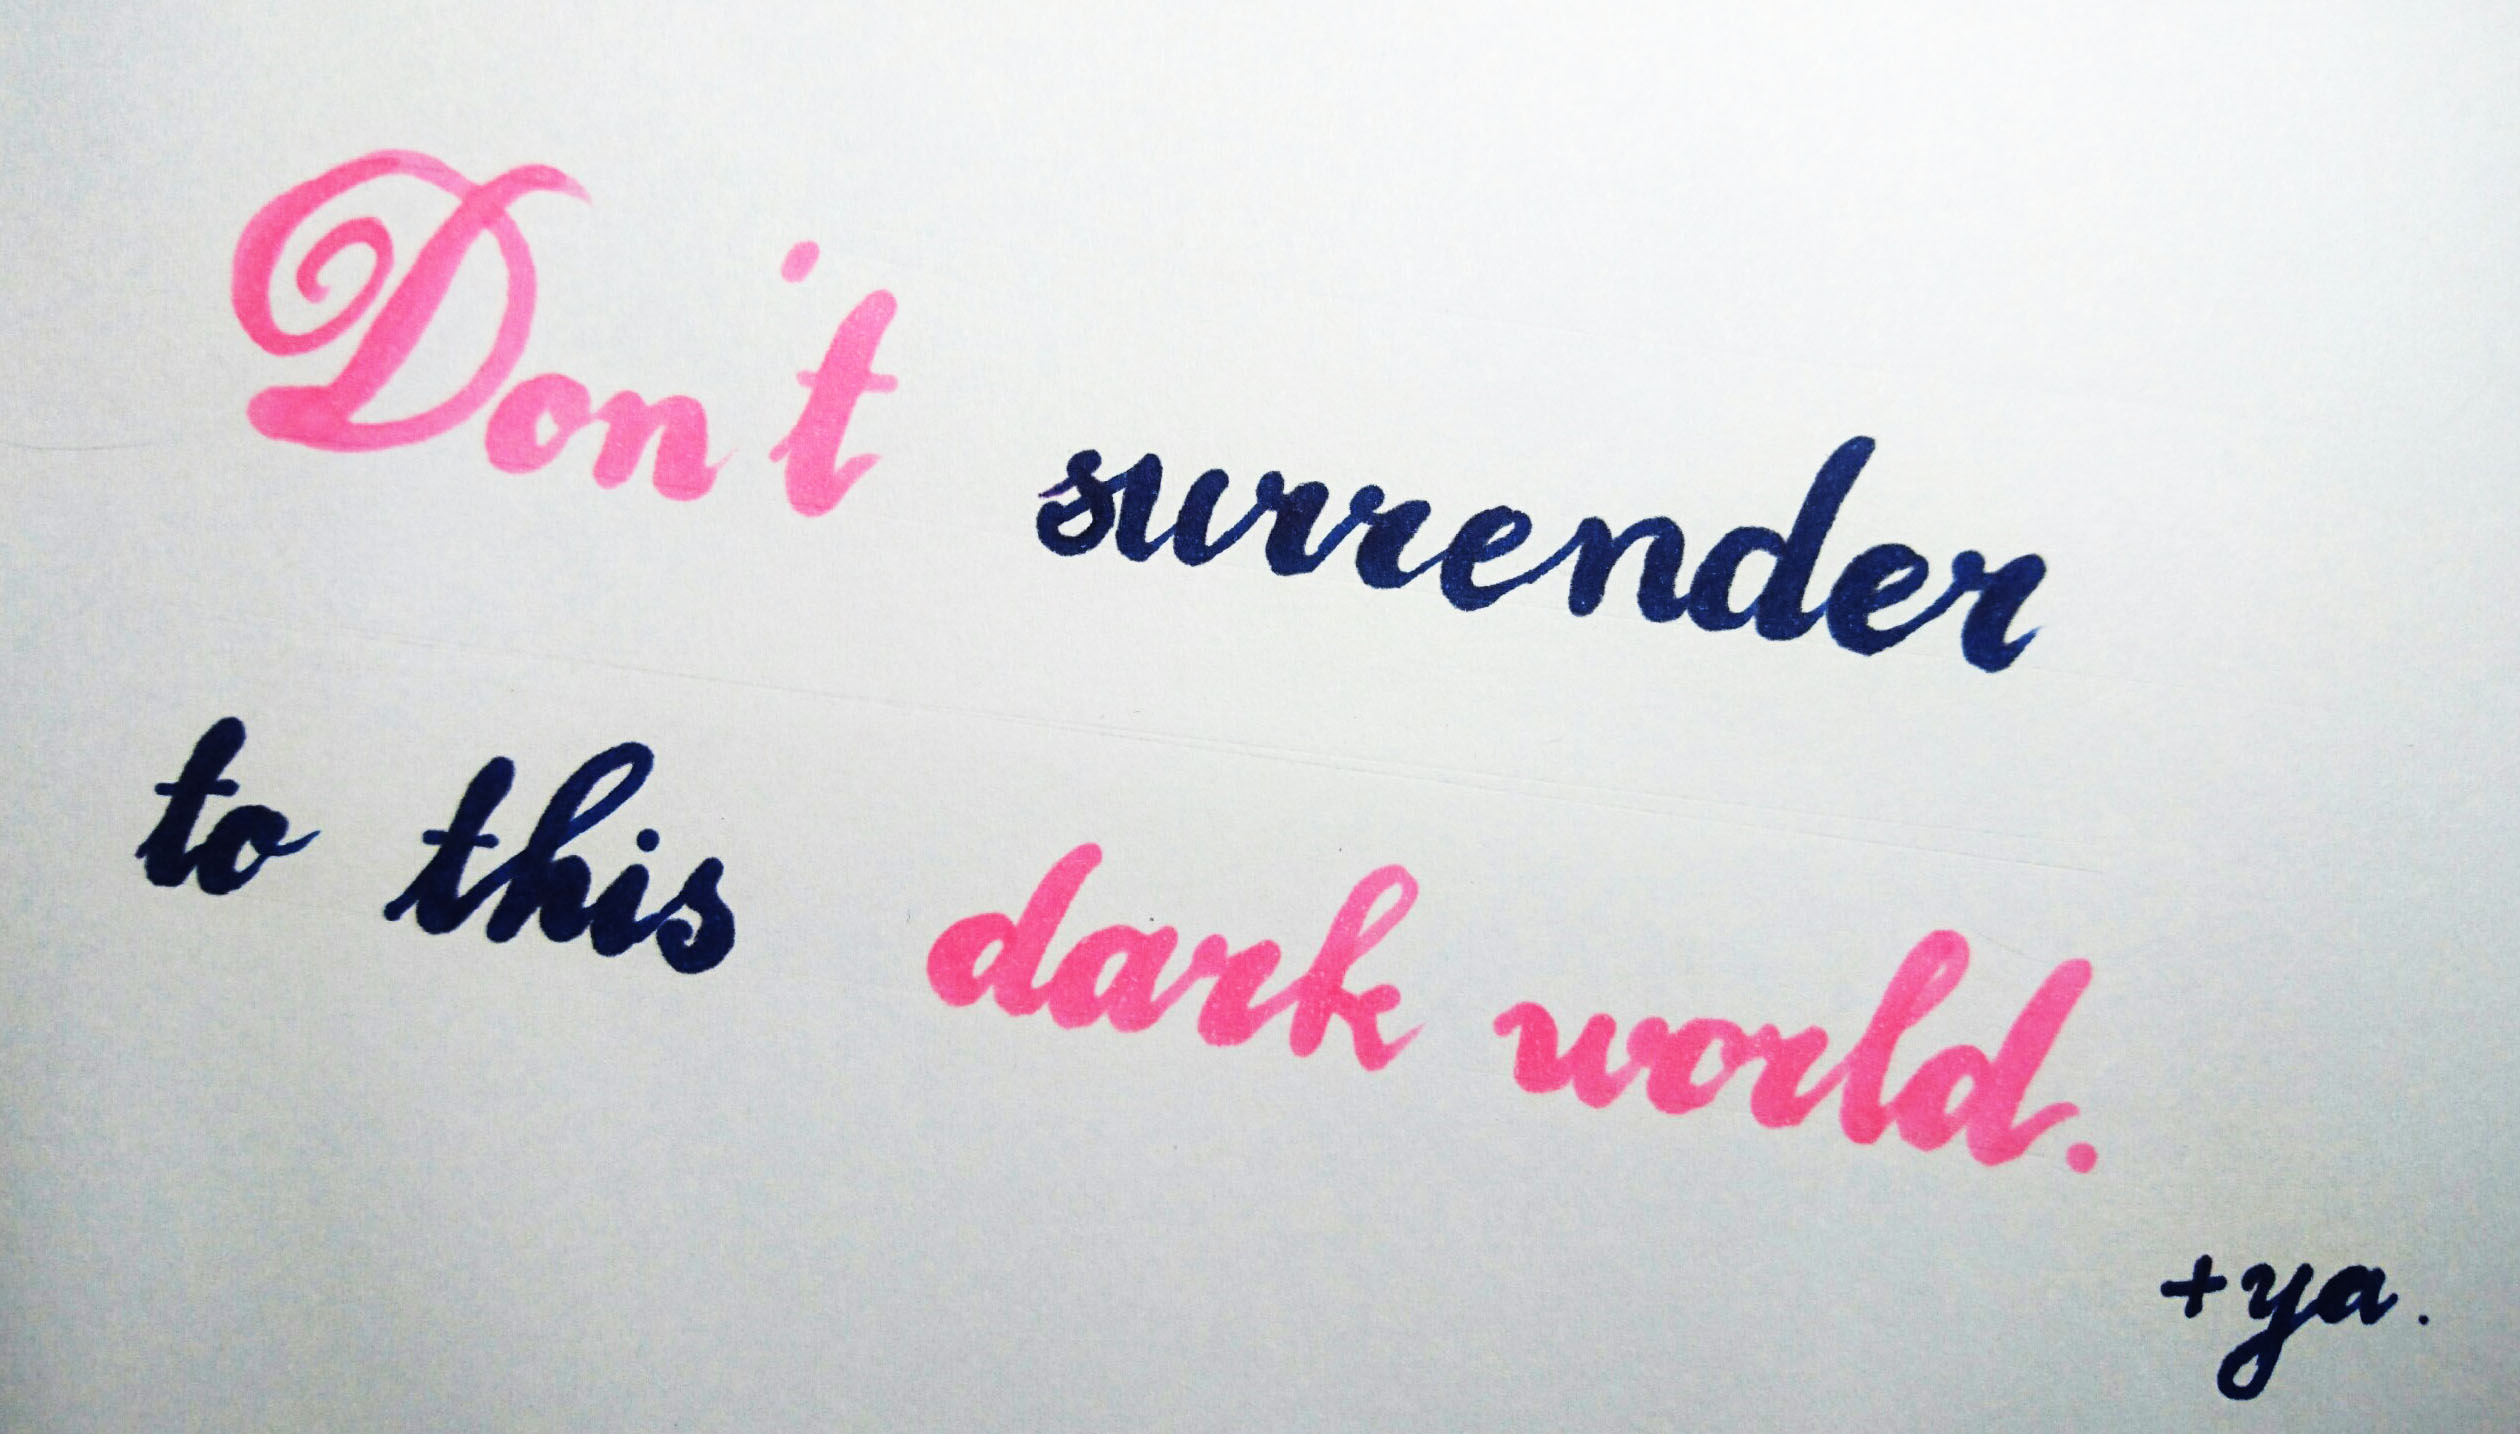 Don't surrender
to this dark world.
+ya.